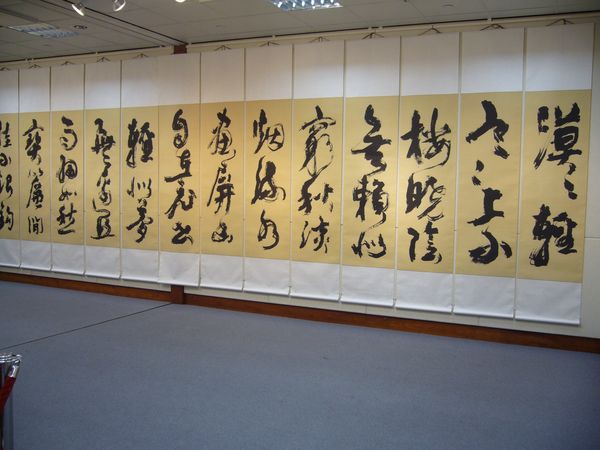 漠〻輕
寒上小
樓曉陰
無賴似
窮秋淡
烟流水
畫屏幽
自在飛花
輕似夢
無邊絲
雨細如愁
寶簾閒
掛小銀鉤